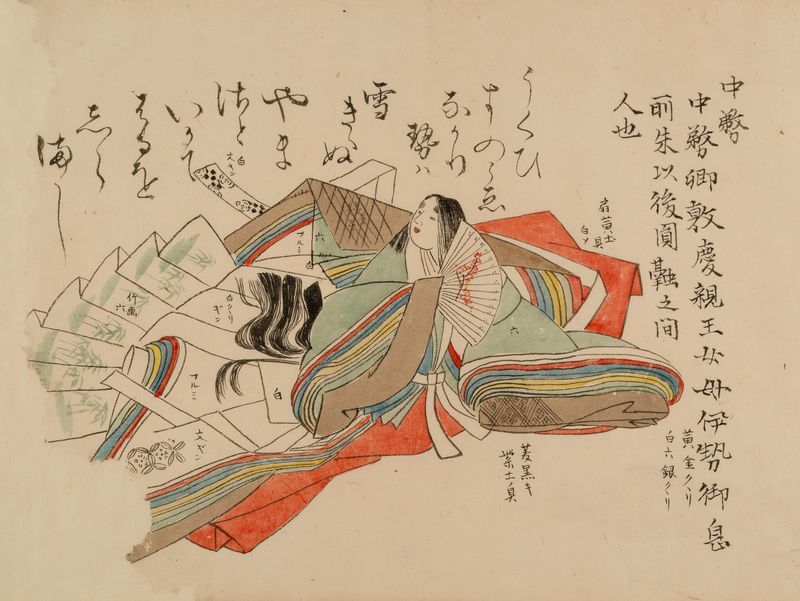 中務
中務卿敦慶親王女母伊勢御息
所朱以後圓融之間
人也
うくひ
すのこゑ
なかり
勢ハ
雪
きえぬ
やま
さと
いかて
はるを
しら
まし
扇黄土具
白ツ
黄金クヽリ
白六銀クヽリ
菱黒キ
紫土具
六
六
白
フルミ
白
文ギン
白クヽリ
ギン
竹画
六
フルミ
白
文ギン